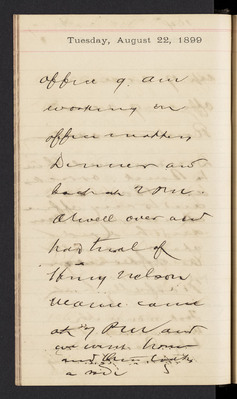 Tuesday, August 22, 1899
office 9. am
working on
office matters
Dinner and
back at 2 PM.
Atwell over and
had trial of
Henry Nelson
came
at 7 PM and
we went
a ride